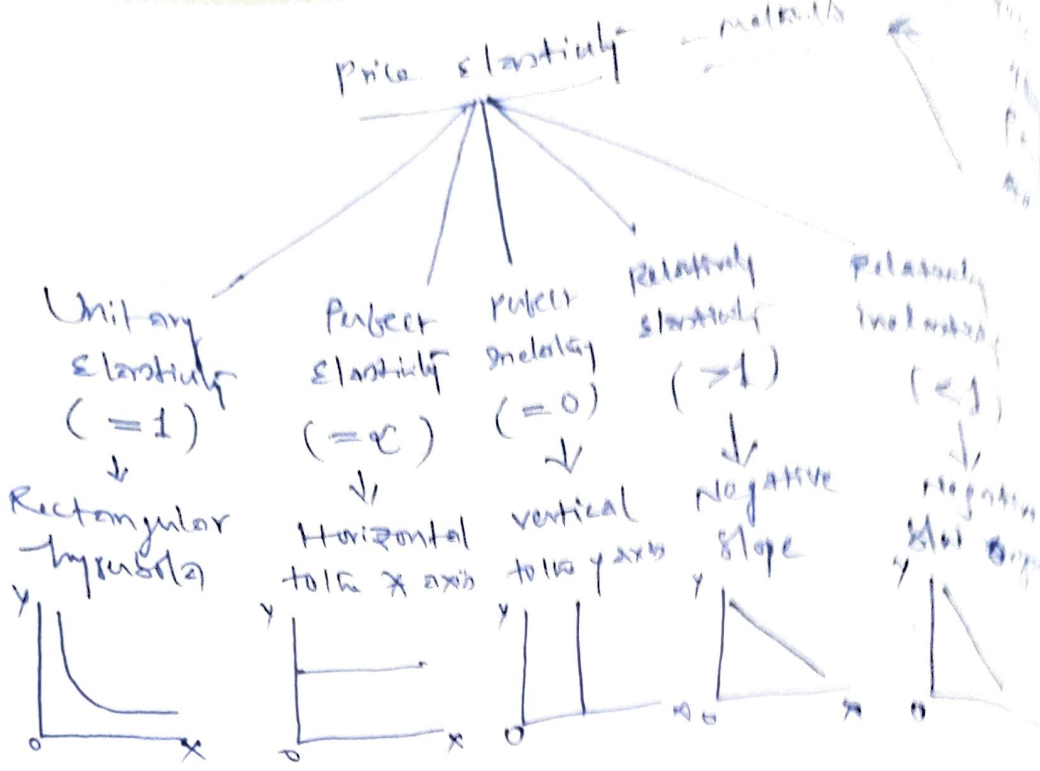 Price Elasticity - methods
Unitary
Elasticity
(=1)
↓
Rectangular
hyperbola
Y
O
X
Perfect
Elasticity
(=∝)
↓
Horizontal
to the X axis
Y
O
X
Perfect
Inelasticity
(=0)
↓
vertical
to the y axis
Y
O
X
Relatively
Elasticity
(>1)
↓
Negative
slope
Y
O
X
Relatively
inelasticity
(<1)
↓
Negative
Y
O